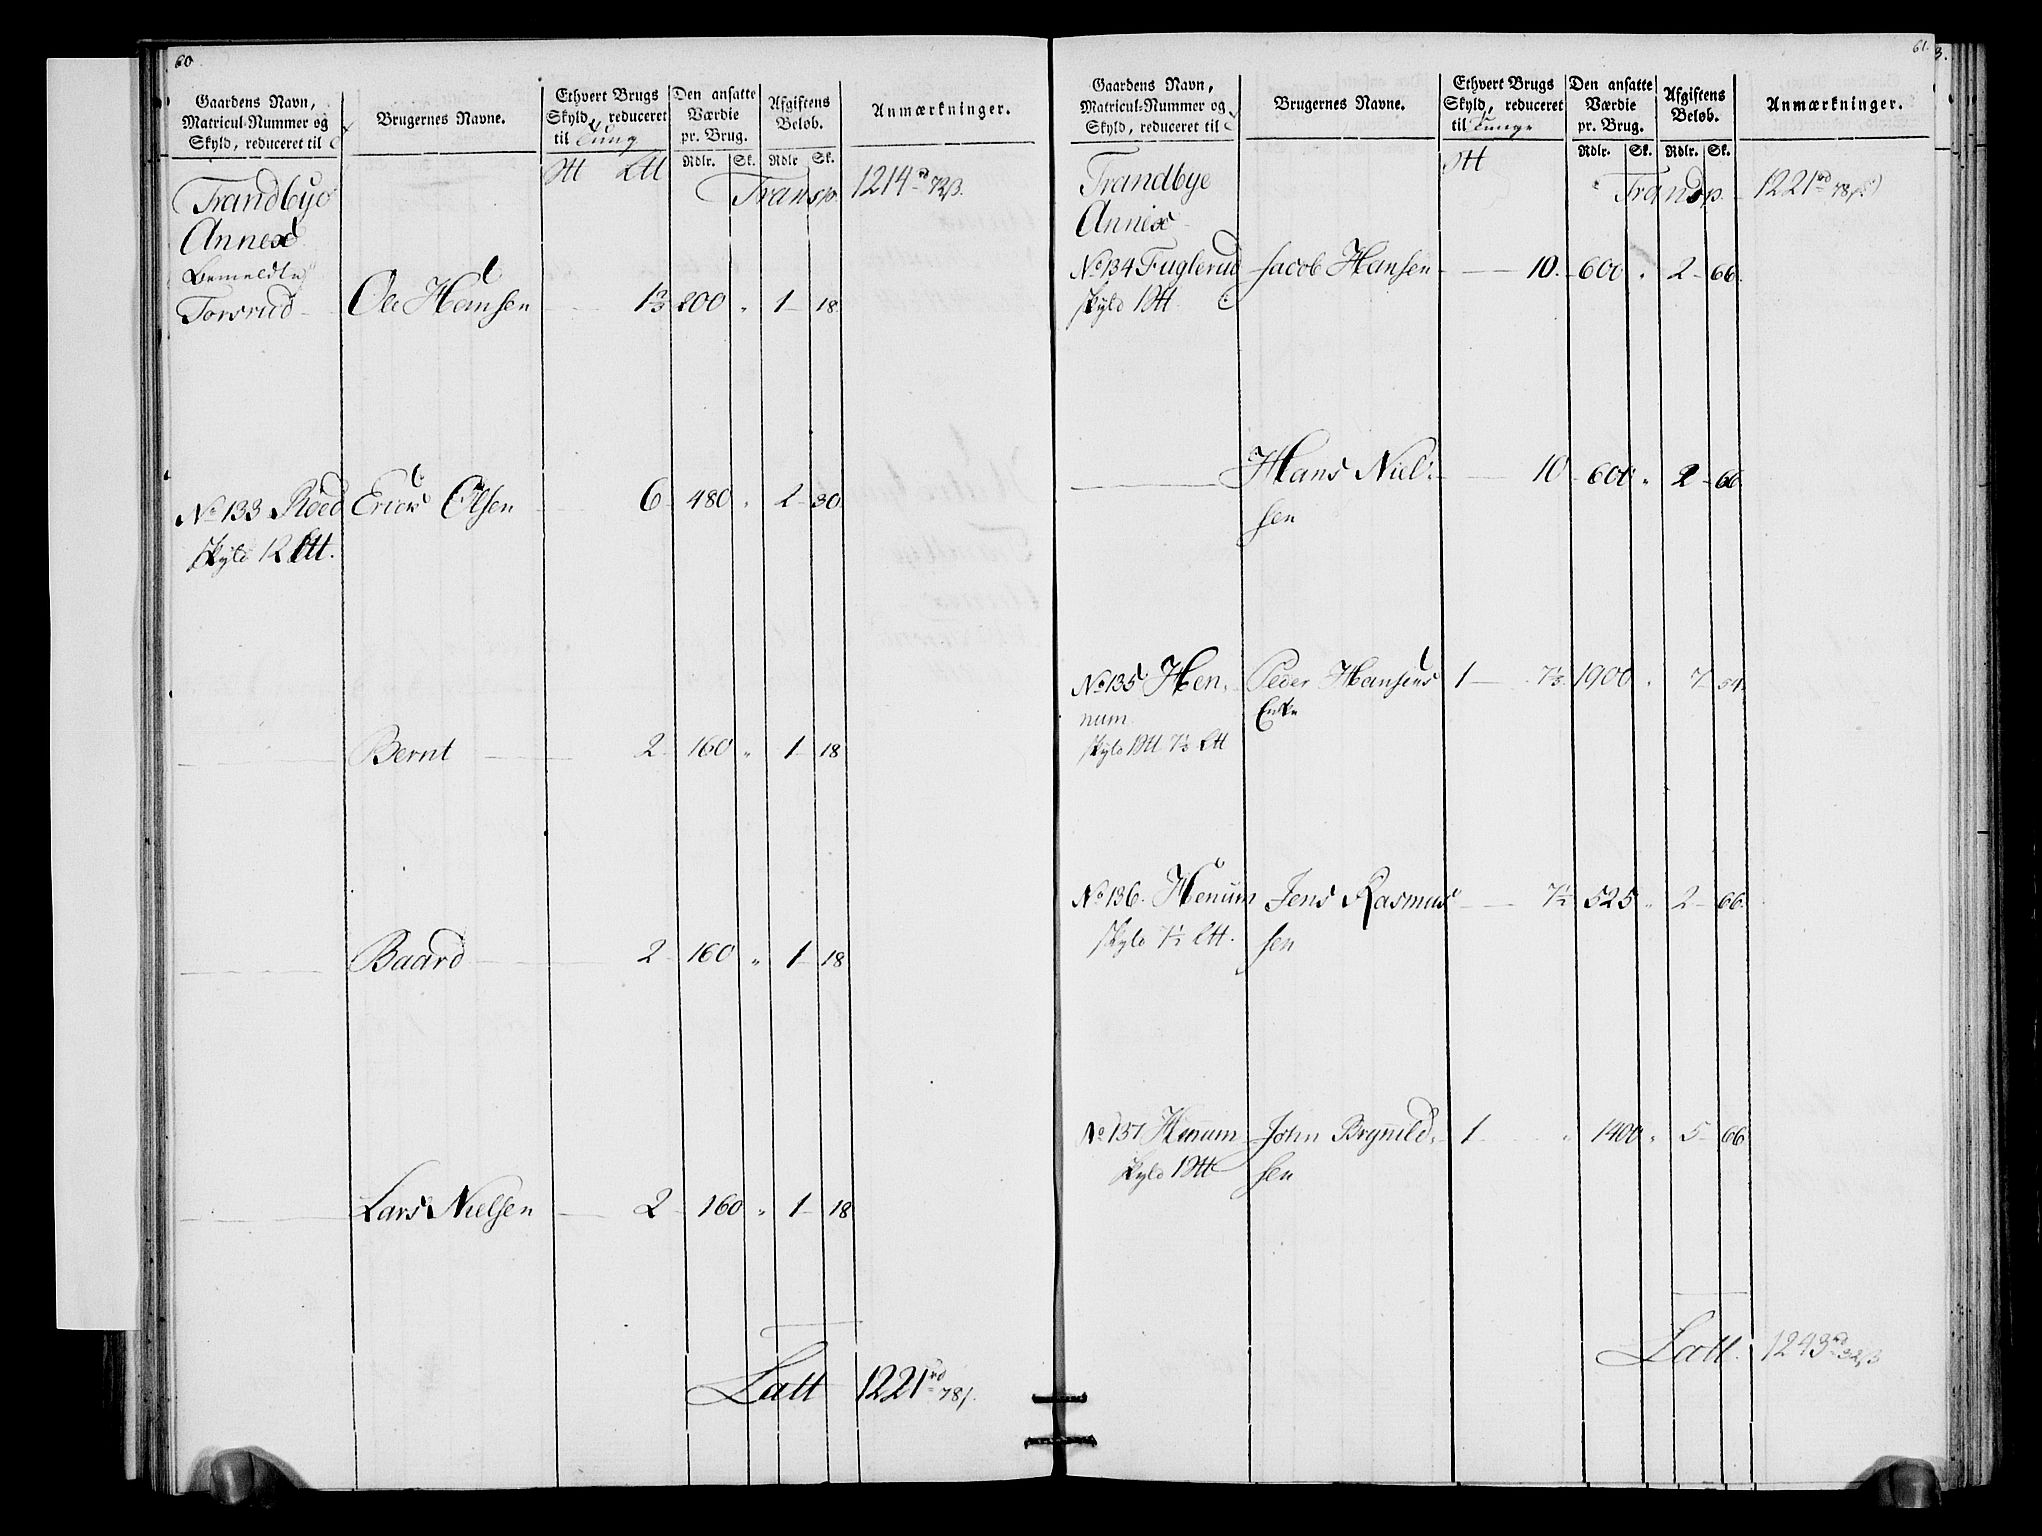 60
Gaardens Navn,
Matricul-Nummer og
Skyld, reduceret til
Brugernes Navne.
Ethvert Brugs
Skyld, reduceret
til Tung
Den ansatte
Værdie
pr. Brug.
Rdlr. Sk.
Afgiftens
Beløb.
Rdlr Sk.
Anmærkninger.
Trandbye
Annex
Transp. 1214 rd 72 ß.
Bemeldte
Torsrud Ole Hansen 1 2/3 200 " 1 18
No 133 Røed Erick Olsen 6 480 " 2 30
Skyld 12 Ltt.
Bernt 2 160 " 1 18
Baard 2 160 " 1 18
Lars Nielsen 2 160 " 1 18
Latt 1221 rd 78 ß.
61.
Gaardens Navn,
Matricul-Nummer og
Skyld, reduceret til
Brugernes Navne.
Ethvert Brugs
Skyld, reduceret
til Tunge
Den ansatte
Værdie
pr. Brug.
Rdlr. Sk.
Afgiftens
Beløb.
Rdlr. Sk.
Anmærkninger.
Trandbye
Annex
Transp. 1221 rd 78 ß
No 134 Fuglerud Jacob Hansen 10. 600 " 2 66.
Skyld 1 Stt.
Hans Niel- 10 600 " 2 66
sen
No 135 Hen- Peder Hansens 1 7 1/3 1900 " 7 54.
num Enke
Skyld 1 Stt 7 1/3 Ltt
No 136. Henum Jens Rasmus 7 1/2 525 " 2 66.
Skyld 7 1/2 Ltt. sen
No 137 Henum John Brynild- 1 " 1400 " 5 66
Skyld 1 Stt sen
Latt. 1243 rd 32 ß